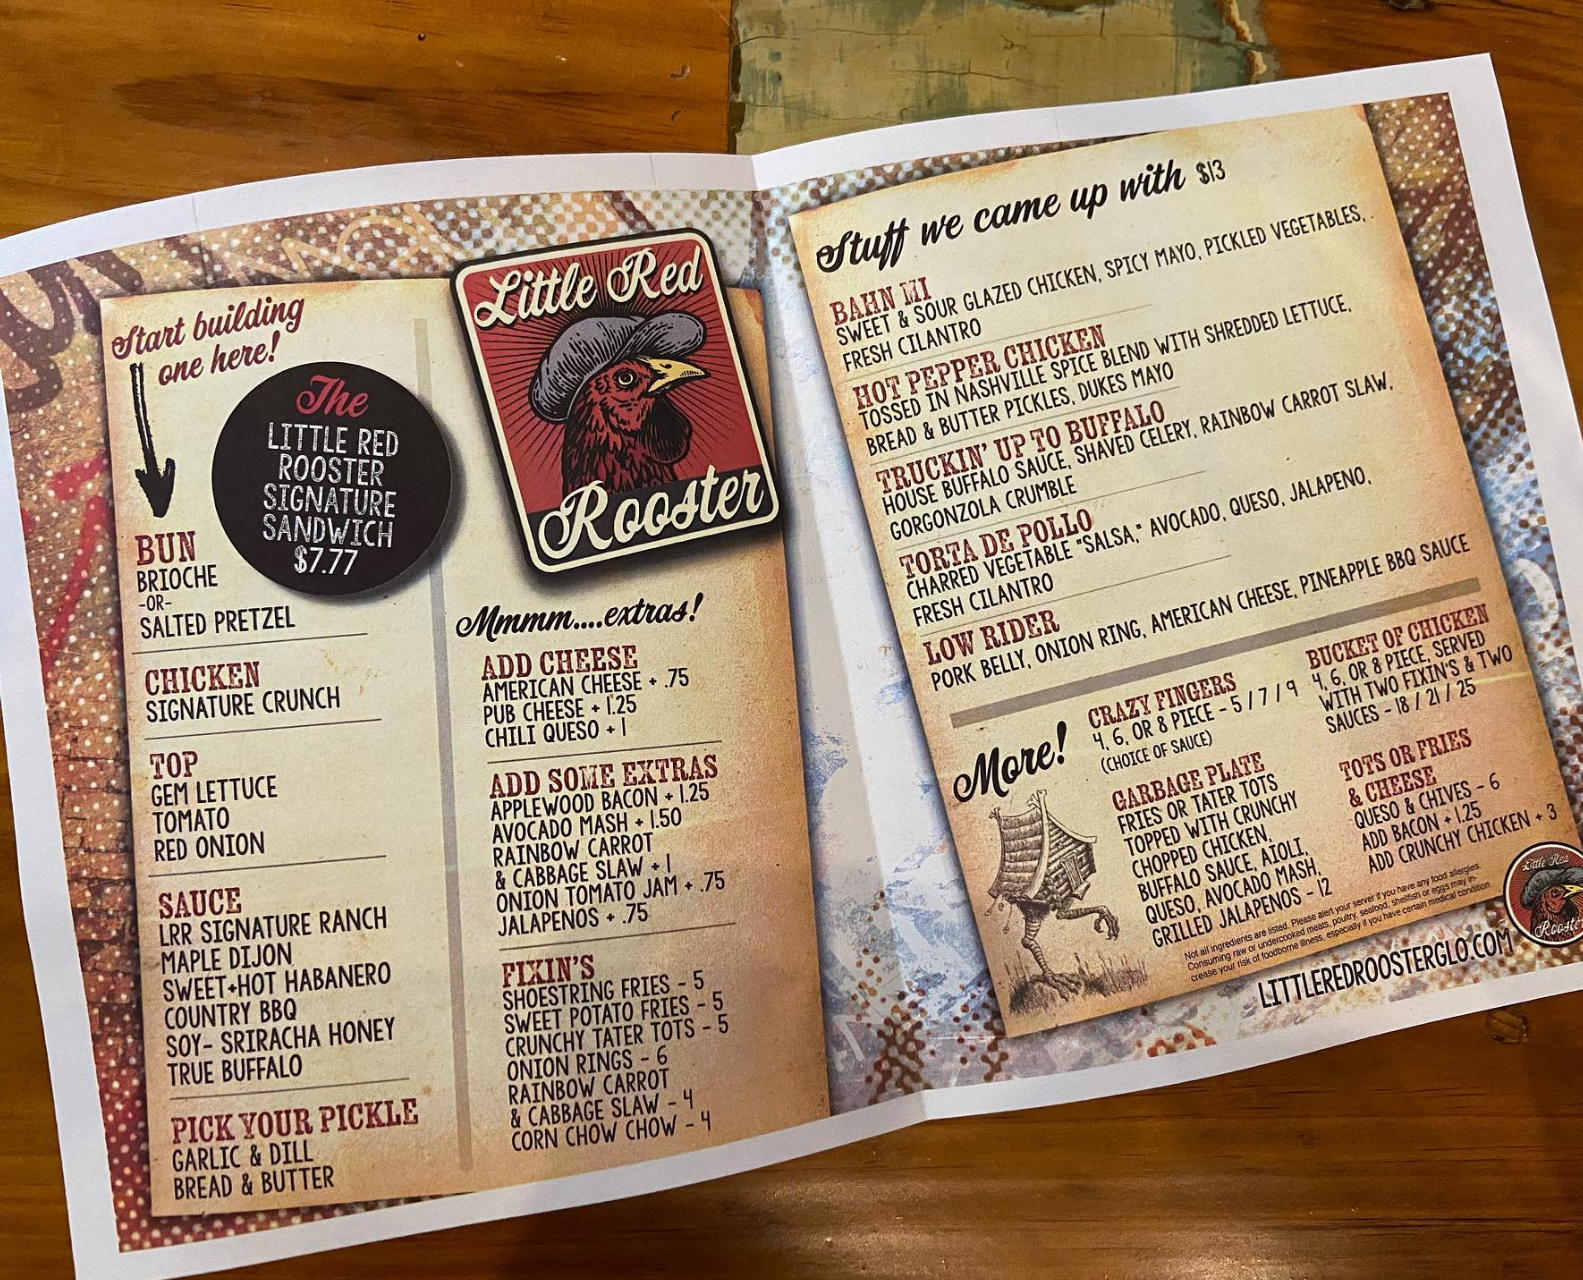 Start building
one here!
The
LITTLE RED
ROOSTER
SIGNATURE
SANDWICH
$7.77
BUN
BRIOCHE
-OR-
SALTED PRETZEL
CHICKEN
SIGNATURE CRUNCH
TOP
GEM LETTUCE
TOMATO
RED ONION
SAUCE
LRR SIGNATURE RANCH
MAPLE DIJON
SWEET+HOT HABANERO
COUNTRY BBQ
SOY- SRIRACHA HONEY
TRUE BUFFALO
PICK YOUR PICKLE
GARLIC & DILL
BREAD & BUTTER
Little Red
Rooster
Mmmm....extras!
ADD CHEESE
AMERICAN CHEESE + .75
PUB CHEESE + 1.25
CHILI QUESO + 1
ADD SOME EXTRAS
APPLEWOOD BACON + 1.25
AVOCADO MASH + 1.50
RAINBOW CARROT
& CABBAGE SLAW + 1
ONION TOMATO JAM + .75
JALAPENOS + .75
FIXIN'S
SHOESTRING FRIES - 5
SWEET POTATO FRIES - 5
CRUNCHY TATER TOTS - 5
ONION RINGS - 6
RAINBOW CARROT
& CABBAGE SLAW - 4
CORN CHOW CHOW - 4
Stuff we came up with $13
BAHN MI
SWEET & SOUR GLAZED CHICKEN, SPICY MAYO, PICKLED VEGETABLES,
FRESH CILANTRO
HOT PEPPER CHICKEN
TOSSED IN NASHVILLE SPICE BLEND WITH SHREDDED LETTUCE,
BREAD & BUTTER PICKLES, DUKES MAYO
TRUCKIN' UP TO BUFFALO
HOUSE BUFFALO SAUCE, SHAVED CELERY, RAINBOW CARROT SLAW,
GORGONZOLA CRUMBLE
TORTA DE POLLO
CHARRED VEGETABLE "SALSA," AVOCADO, QUESO, JALAPENO,
FRESH CILANTRO
LOW RIDER
PORK BELLY, ONION RING, AMERICAN CHEESE, PINEAPPLE BBQ SAUCE
More!
CRAZY FINGERS
4, 6, OR 8 PIECE - 5 / 7 / 9
(CHOICE OF SAUCE)
GARBAGE PLATE
FRIES OR TATER TOTS
TOPPED WITH CRUNCHY
CHOPPED CHICKEN,
BUFFALO SAUCE, AIOLI,
QUESO, AVOCADO MASH,
GRILLED JALAPENOS - 12
BUCKET OF CHICKEN
4, 6, OR 8 PIECE, SERVED
WITH TWO FIXIN'S & TWO
SAUCES - 18 / 21 / 25
TOTS OR FRIES
& CHEESE
QUESO & CHIVES - 6
ADD BACON + 1.25
ADD CRUNCHY CHICKEN + 3
Not all ingredients are listed. Please alert your server if you have any food allergies.
Consuming raw or undercooked meats, poultry, seafood, shellfish or eggs may in-
crease your risk of foodborne illness, especially if you have certain medical condition
Little Red
Rooste
LITTLEREDROOSTERGLO.COM